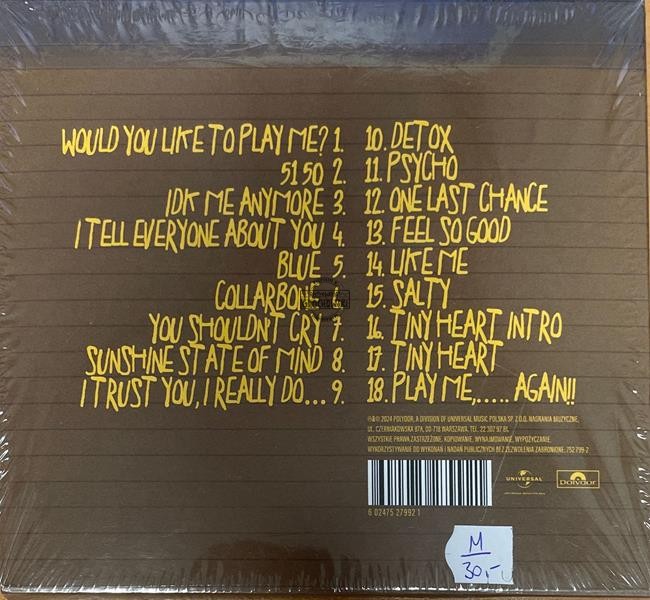 WOULD YOU LIKE TO PLAY ME? 1.
5150 2.
IDK ME ANYMORE 3.
I TELL EVERYONE ABOUT YOU 4.
BLUE 5.
YOU SHOULDNT CRY 7.
SUNSHINE STATE OF MIND 8.
I TRUST YOU, I REALLY DO... 9.
10. DETOX
11. PSYCHO
12. ONE LAST CHANCE
13. FEEL SO GOOD
14. LIKE ME
15. SALTY
16. TINY HEART INTRO
17. TINY HEART
18. PLAY ME,..... AGAIN!!
℗&© 2024 POLYDOR, A DIVISION OF UNIVERSAL MUSIC POLSKA SP. Z O.O. NAGRANIA MUZYCZNE,
UL. CZERNIAKOWSKA 87A, 00-718 WARSZAWA. TEL. 22 307 97 81.
WSZYSTKIE PRAWA ZASTRZEŻONE, KOPIOWANIE, WYNAJMOWANIE, WYPOŻYCZANIE,
WYKORZYSTYWANIE DO WYKONAŃ I NADAŃ PUBLICZNYCH BEZ ZEZWOLENIA ZABRONIONE. 752 799-2
UNIVERSAL
Polydor
6 02475 27992 1
M
30,-